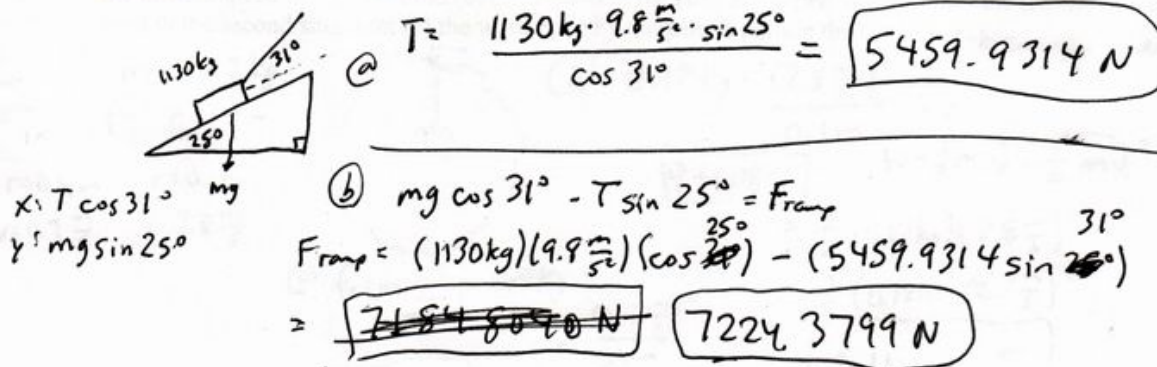 1130kg
31°
25°
mg
x: T cos 31°
y: mg sin 25°
ⓐ T = 1130kg · 9.8 m/s² · sin 25° / cos 31° = 5459.9314 N
ⓑ mg cos 31° - T sin 25° = Framp
Framp = (1130kg)(9.8 m/s²)(cos 25°) - (5459.9314 sin 31°)
= 7224.3799 N